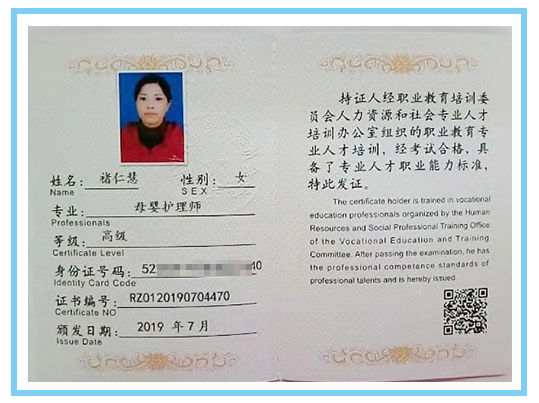 姓名: 褚仁慧 性别: 女
Name SEX
专业: 母婴护理师
Professionals
等级: 高级
Certificate Level
身份证号码: 52 40
Identity Card Code
证书编号: RZ0120190704470
Certificate NO
颁发日期: 2019 年 7 月
Issue Date
持证人经职业教育培训委
员会人力资源和社会专业人才
培训办公室组织的职业教育专
业人才培训，经考试合格，具
备了专业人才职业能力标准，
特此发证。
The certificate holder is trained in vocational
education professionals organized by the Human
Resources and Social Professional Training Office
of the Vocational Education and Training
Committee. After passing the examination, he has
the professional competence standards of
professional talents and is hereby issued.